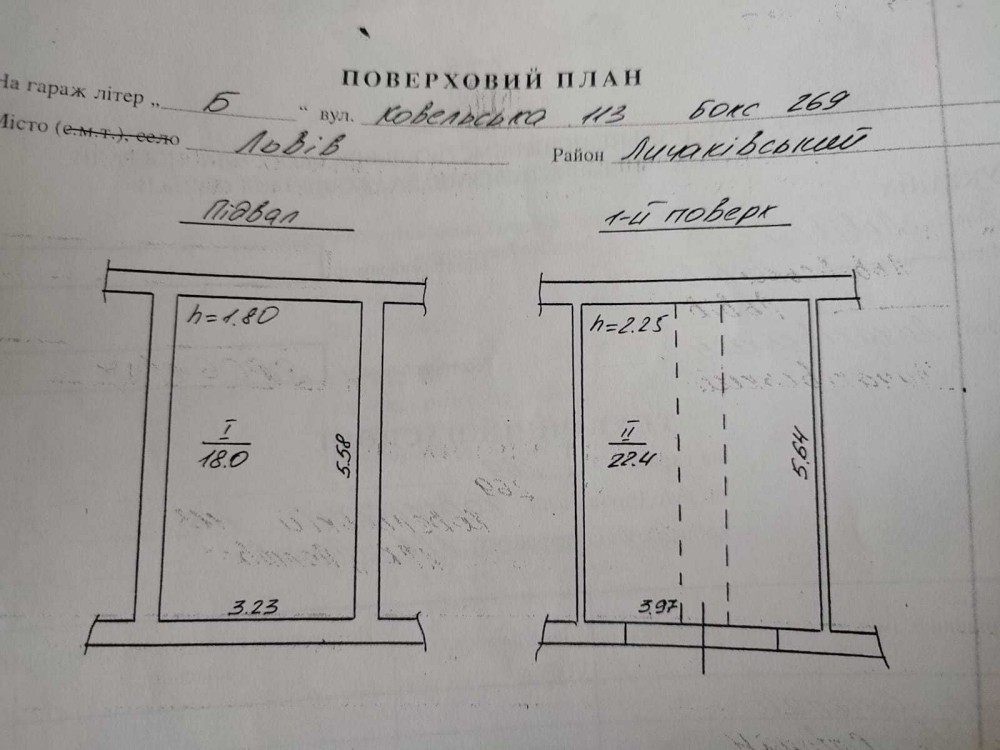 ПОВЕРХОВИЙ ПЛАН
На гараж літер „ Б “ вул. Ковельська 113 бокс 269
Місто (с.м.т.), село Львів Район Личаківський
Підвал 1-й поверх
h=1.80 h=2.25
I II
18.0 22.4
5.58 5.64
3.23 3.97